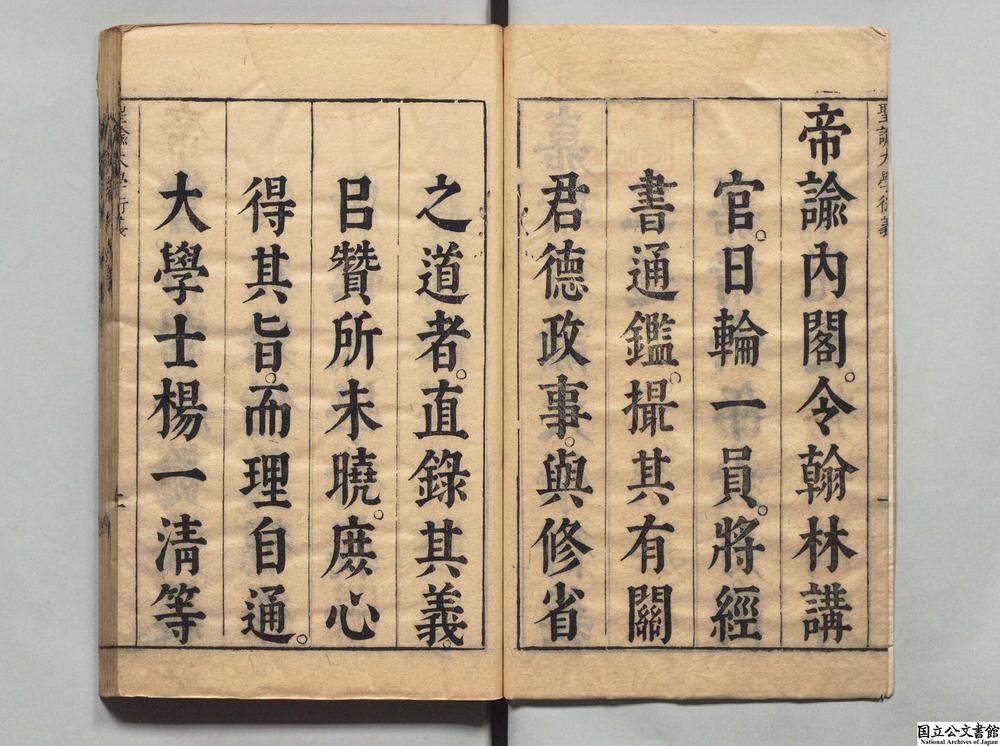 聖諭大學衍義
帝諭內閣。令翰林講
官。日輪一員。將經
書通鑑。撮其有關
君德政事。與修省
之道者。直錄其義。
㠯贊所未曉。庶心
得其旨。而理自通。
大學士楊一清等
聖諭大學衍義
国立公文書館
National Archives of Japan